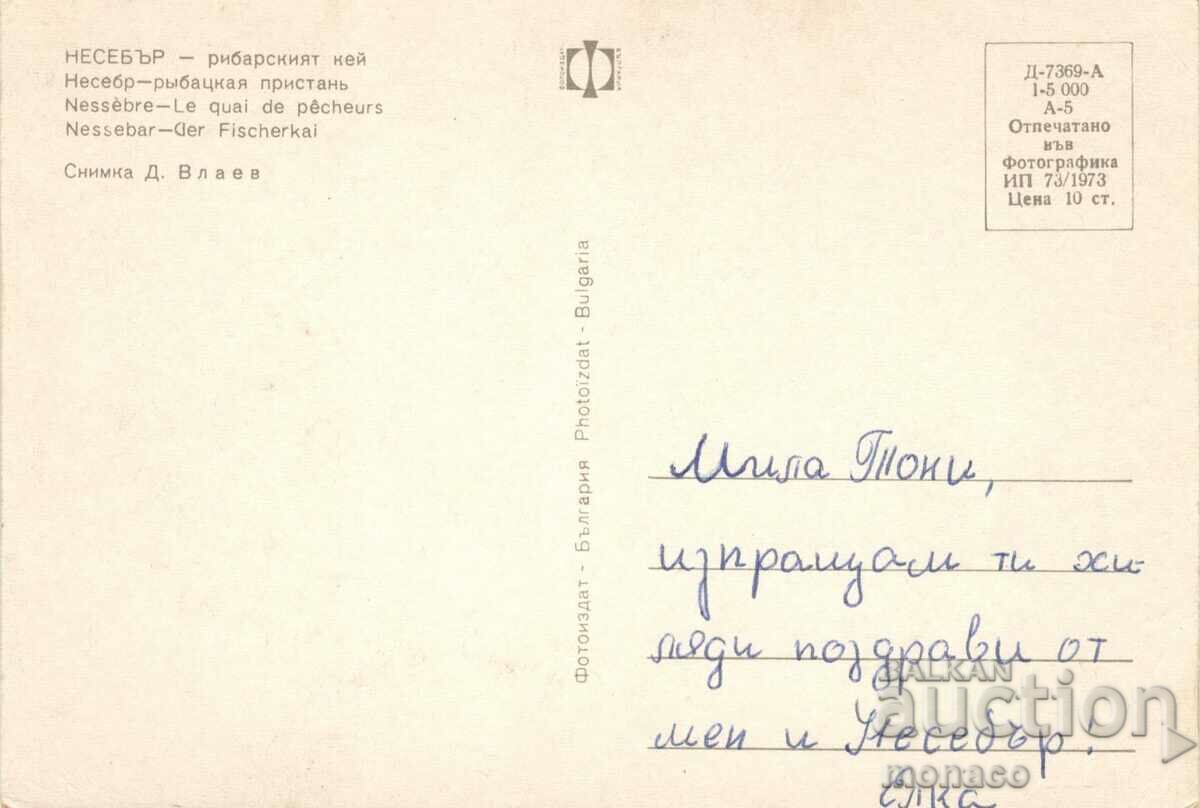 НЕСЕБЪР — рибарският кей
Несебр—рыбацкая пристань
Nessèbre—Le quai de pêcheurs
Nessebar—der Fischerkai
Снимка Д. Влаев
Д-7369-А
1-5 000
А-5
Отпечатано
във
Фотографика
ИП 73/1973
Цена 10 ст.
Фотоиздат - България Photoïzdat - Bulgaria
Мила Тони,
изпращам ти хи-
ляди поздрави от
мен и Несебър!
Елка
BALKAN
auction
monaco